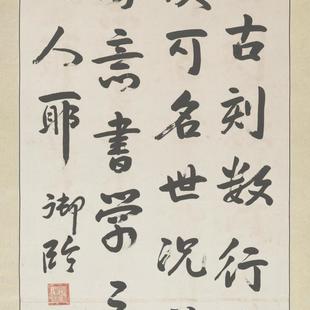 古刻数行
可名世况
意書学之
人耶
御臨